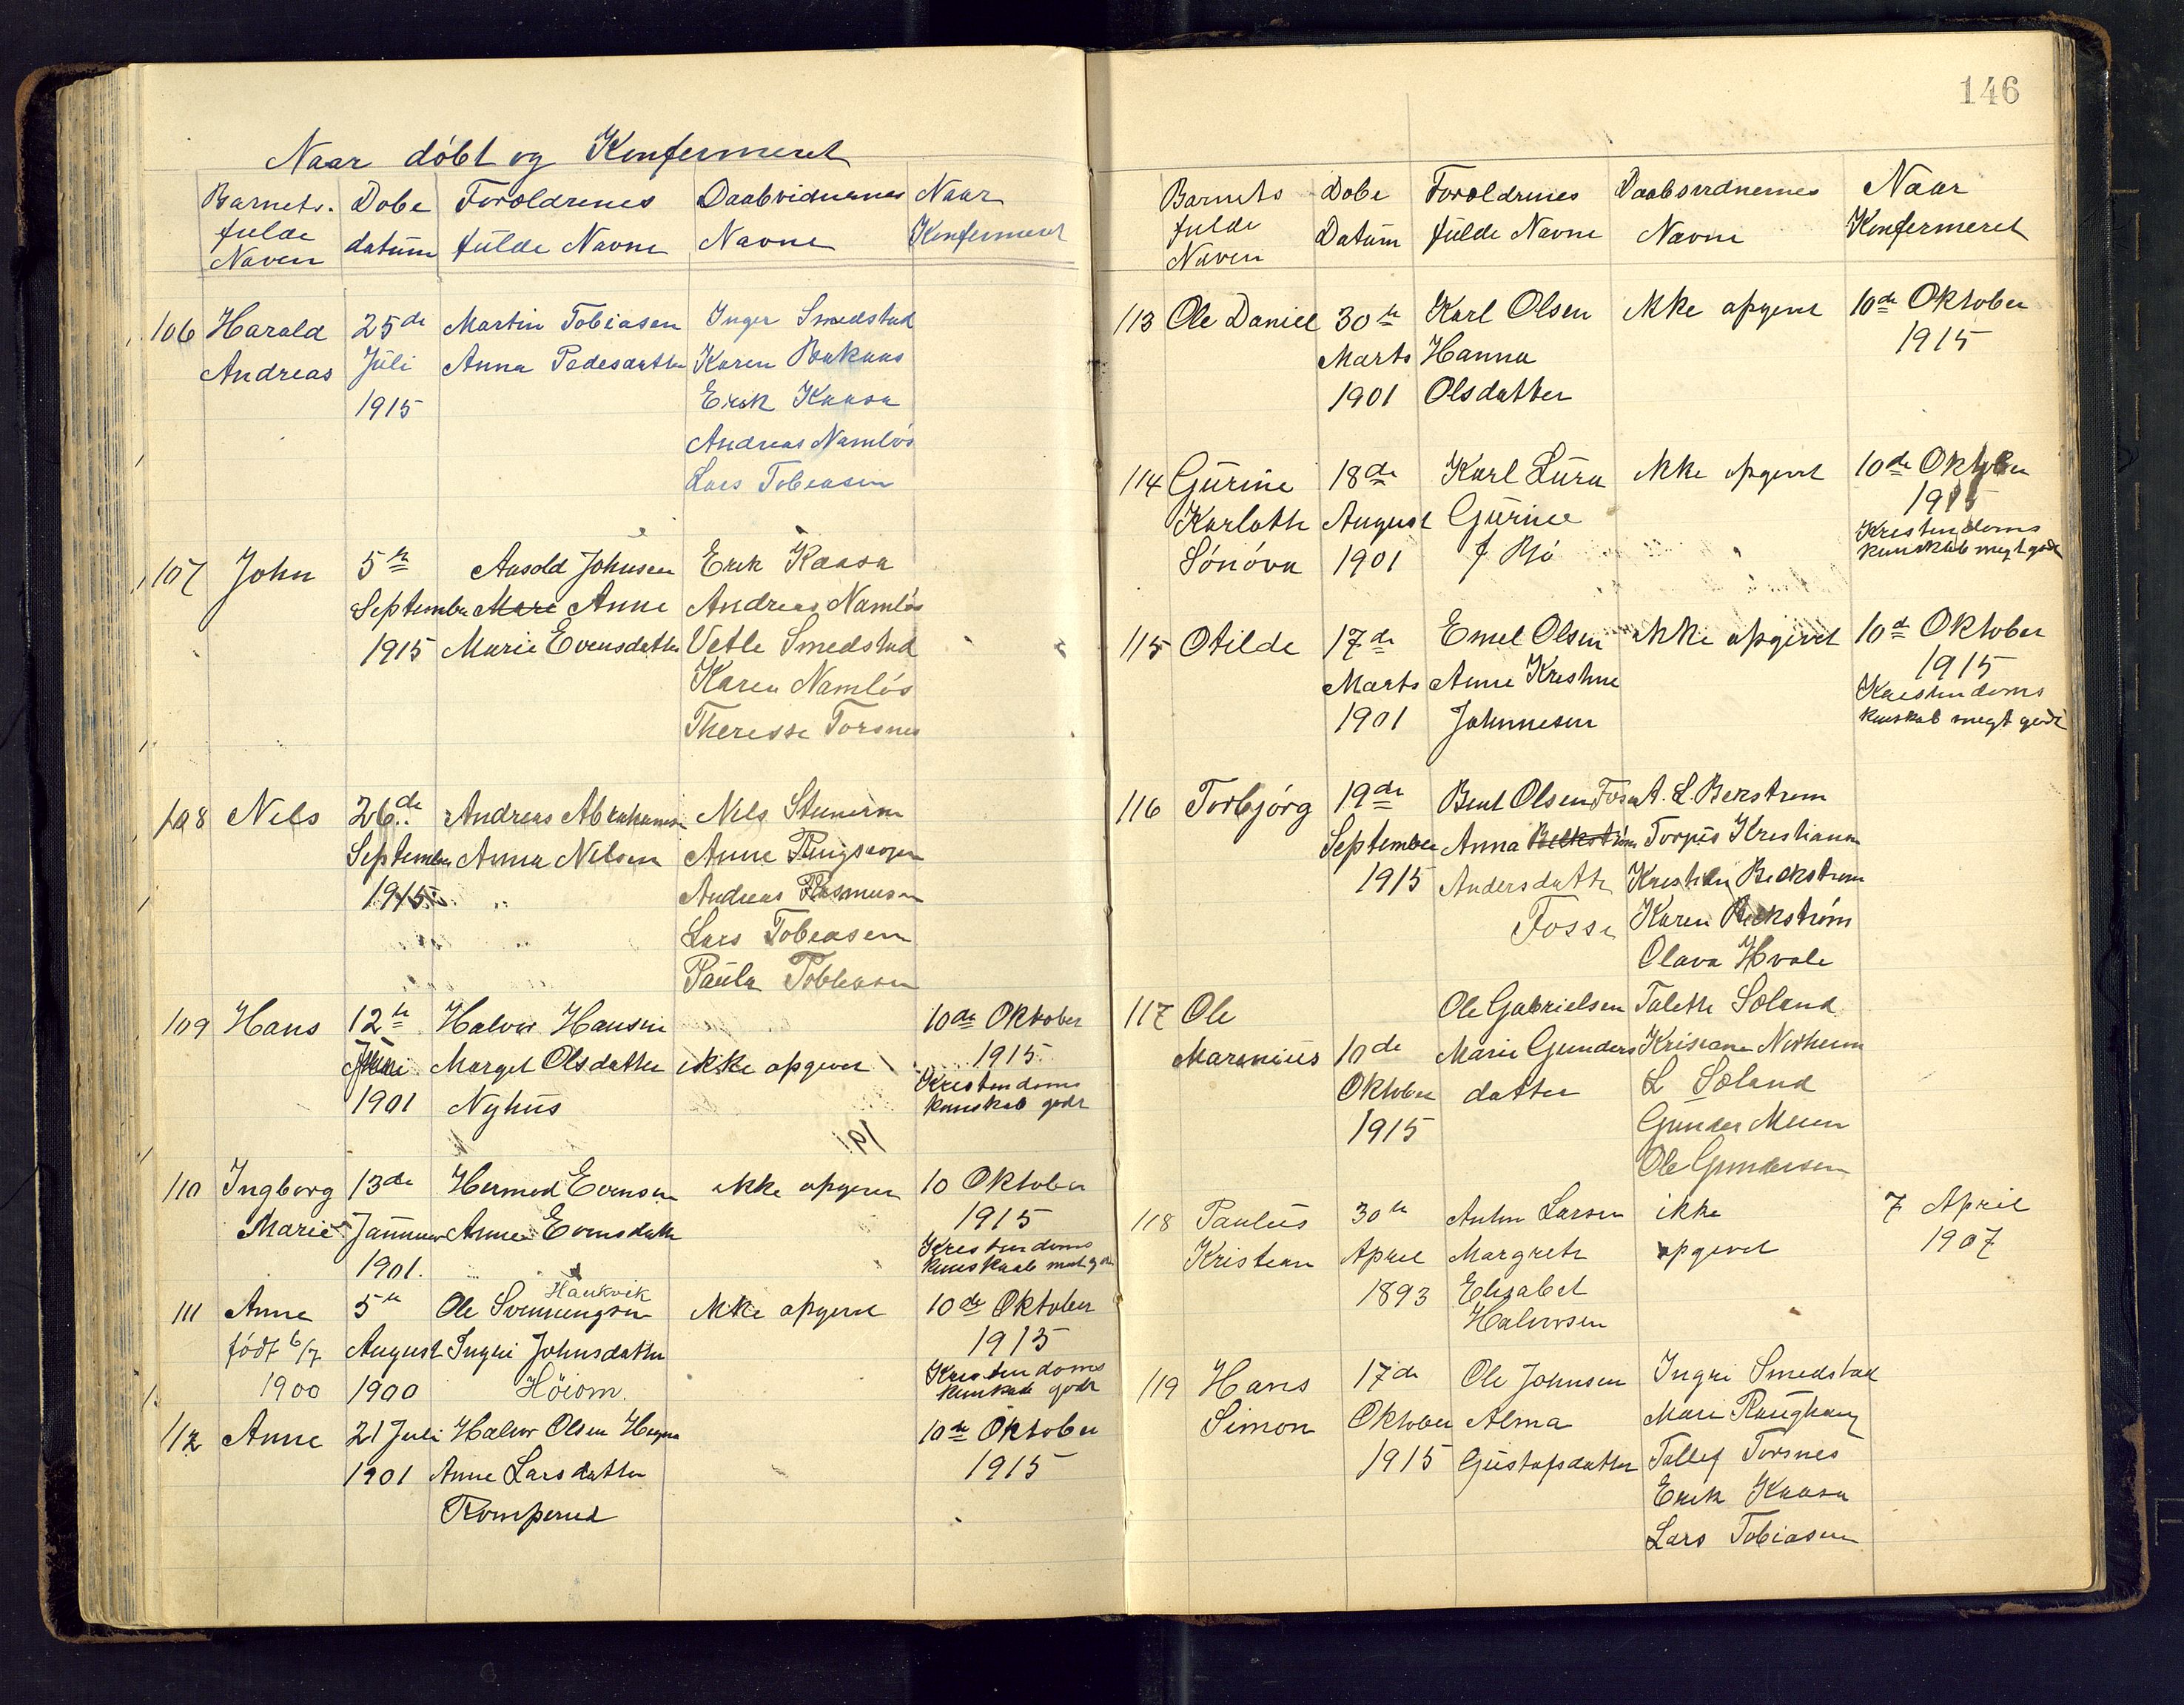 146
Naar döbt og Konfermeret
Barnets fulde Naven | Dobe datüm | Foroldrenes fülde Navne | Daabvidnenes Navne | Naar Konfermeret
106 Harald Andreas | 25de Jüli 1915 | Martin Tobiasen
Anna Pedesdatter | Inger Smedstad
Karen
Erik Kaasa
Andreas Namlös
Lars Tobiasen
107 John | 5te September 1915 | Aasold Johnsen
Anne
Marie Evensdatter | Erik Kaasa
Andreas Namlös
Vetle Smedstad
Karen Namlös
Theresse Torsnes
108 Nels | 26de September 1915 | Andreas Abrahamsen
Anna Nelsen | Nels
Anne
Andreas Rasmusen
Lars Tobeasen
Paula Tobbeasen
109 Hans | 12te Juni 1901 | Halvor Hansen
Marget Olsdatter
Nyhüs | ikke opgevet | 10de Oktober
1915
Kristendoms
kunskab godt
110 Ingborg Marie | 13de Januar 1901. | Hermod Evensen
Anne Evensdatter | ikke opgevet | 10 Oktober
1915
Kristendoms
kunskaab
111 Anne
födt 6/7
1900 | 5te August 1900 | Haukvik
Ole Svennungsen
Ingri Johnsdatter
Höiom. | ikke opgevet | 10de Oktober
1915
Kristendoms
kunskab godt
112 Anne | 21 Juli 1901 | Halvor Olsen
Anne Larsdatter
Romperud | 10de Oktober
1915
Barnets fulde Naven | Dobe Datüm | Foroldrenes fülde Navne | Daabsvidnernes Navne | Naar Konfermeret
113 Ole Daniel | 30te Marts 1901 | Karl Olsen
Hanna
Olsdatter | ikke opgevet | 10de Oktober
1915
114 Gürine
Karlotte
Sönöva | 18de August 1901 | Karl Lüra
Gürine
f Bö | ikke opgevet | 10de Oktober
1915
Kristendoms
kunskab megt godt
115 Otilde | 17de Marts 1901 | Emel Olsen
Anne Kristine
Johannesen | ikke opgivet | 10de Oktober
1915
Kristendoms
kunskab megt godt
116 Torbjörg | 19de September 1915 | Bent Olsen Fosse
Anna Bekström
Andersdatter
Fosse | A. L. Berstrom
Torpis Kristiansen
Kristian Beckstrom
Karen Bekström
Olava Hvale
117 Ole
Marenius | 10de Oktober 1915 | Ole Gabrielsen
Marie Gunders
datter | Talette Soland
Krisiane Norheim
L Soland
Gunder Meen
Ole Gundersen
118 Paulüs
Kristean | 30te April 1893 | Anton Larsen
Margrete
Elisabet
Halvorsen | ikke
opgevet | 7 April
1907
119 Hans
Simon | 17de Oktober 1915 | Ole Johnsen
Alma
Güstafsdatter | Ingri Smedstad
Mari Raughaug
Tallef Torsnes
Erik Kaasa
Lars Tobiasen